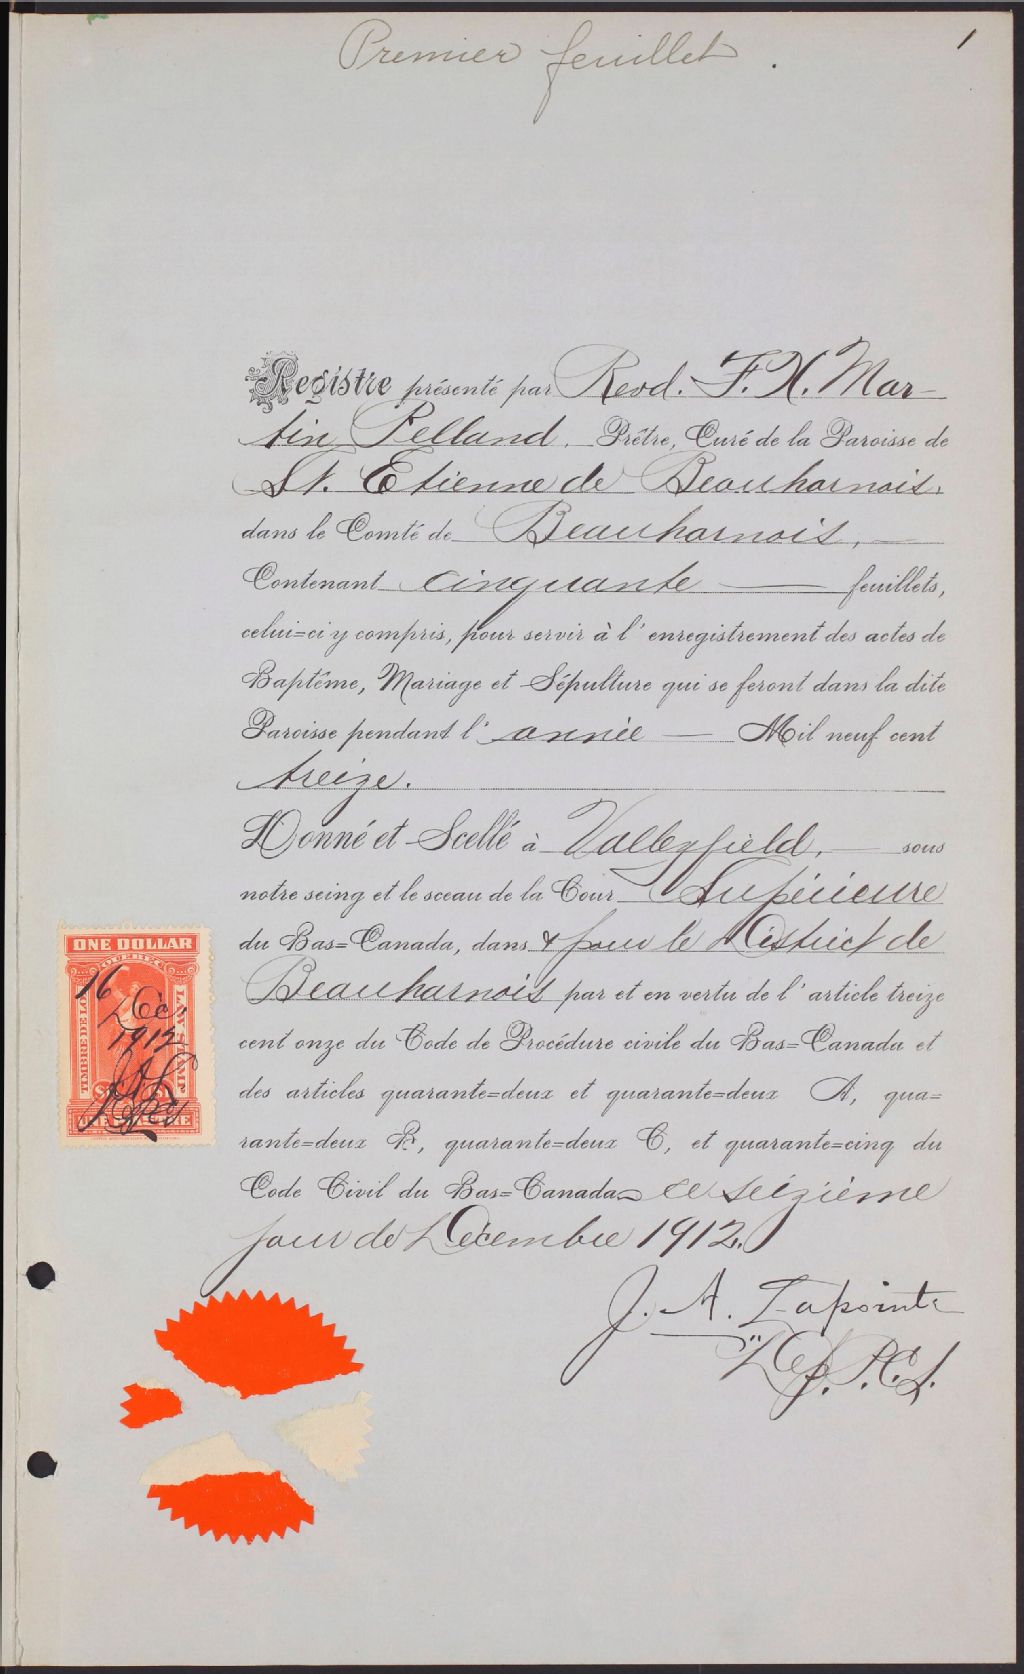 Premier feuillet.
1
Registre présenté par Revd. F. X. Mar-
tin Pelland. Prêtre, Curé de la Paroisse de
St. Etienne de Beauharnois,
dans le Comté de Beauharnois,
Contenant cinquante feuillets,
celui=ci y compris, pour servir à l'enregistrement des actes de
Baptême, Mariage et Sépulture qui se feront dans la dite
Paroisse pendant l'année Mil neuf cent
treize.
Donné et Scellé à Valleyfield, sous
notre seing et le sceau de la Cour Supérieure
du Bas=Canada, dans & pour le District de
Beauharnois par et en vertu de l'article treize
cent onze du Code de Procédure civile du Bas=Canada et
des articles quarante=deux et quarante=deux A, qua=
rante=deux B, quarante=deux C, et quarante=cinq du
Code Civil du Bas=Canada ce seizième
jour de Décembre 1912.
J. A. Lapointe
Dep. P.C.S.
ONE DOLLAR
QUEBEC
TIMBRE DE LOI
LAW STAMP
16
Déc.
1912